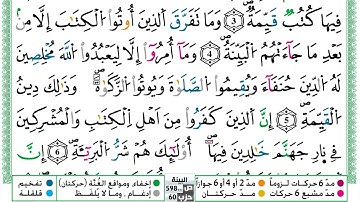 فِيهَا كُتُبٌ قَيِّمَةٌ ﴿3﴾ وَمَا تَفَرَّقَ الَّذِينَ أُوتُوا الْكِتَابَ إِلَّا مِنْ
بَعْدِ مَا جَاءَتْهُمُ الْبَيِّنَةُ ﴿4﴾ وَمَا أُمِرُوا إِلَّا لِيَعْبُدُوا اللَّهَ مُخْلِصِينَ
لَهُ الدِّينَ حُنَفَاءَ وَيُقِيمُوا الصَّلَوٰةَ وَيُؤْتُوا الزَّكَوٰةَ وَذَٰلِكَ دِينُ
الْقَيِّمَةِ ﴿5﴾ إِنَّ الَّذِينَ كَفَرُوا مِنْ أَهْلِ الْكِتَابِ وَالْمُشْرِكِينَ
فِي نَارِ جَهَنَّمَ خَالِدِينَ فِيهَا أُولَٰئِكَ هُمْ شَرُّ الْبَرِيَّةِ ﴿6﴾ إِنَّ
مدّ 6 حركات لزوماً مدّ 2 أو 4 أو 6 جوازاً
مدّ مشبع 6 حركات مدّ حركتان
البينة
ص 598
حزب 60
إخفاء، ومواقع الغُنَّة (حركتان) تفخيم
إدغام، وما لا يُلفَظ قلقلة